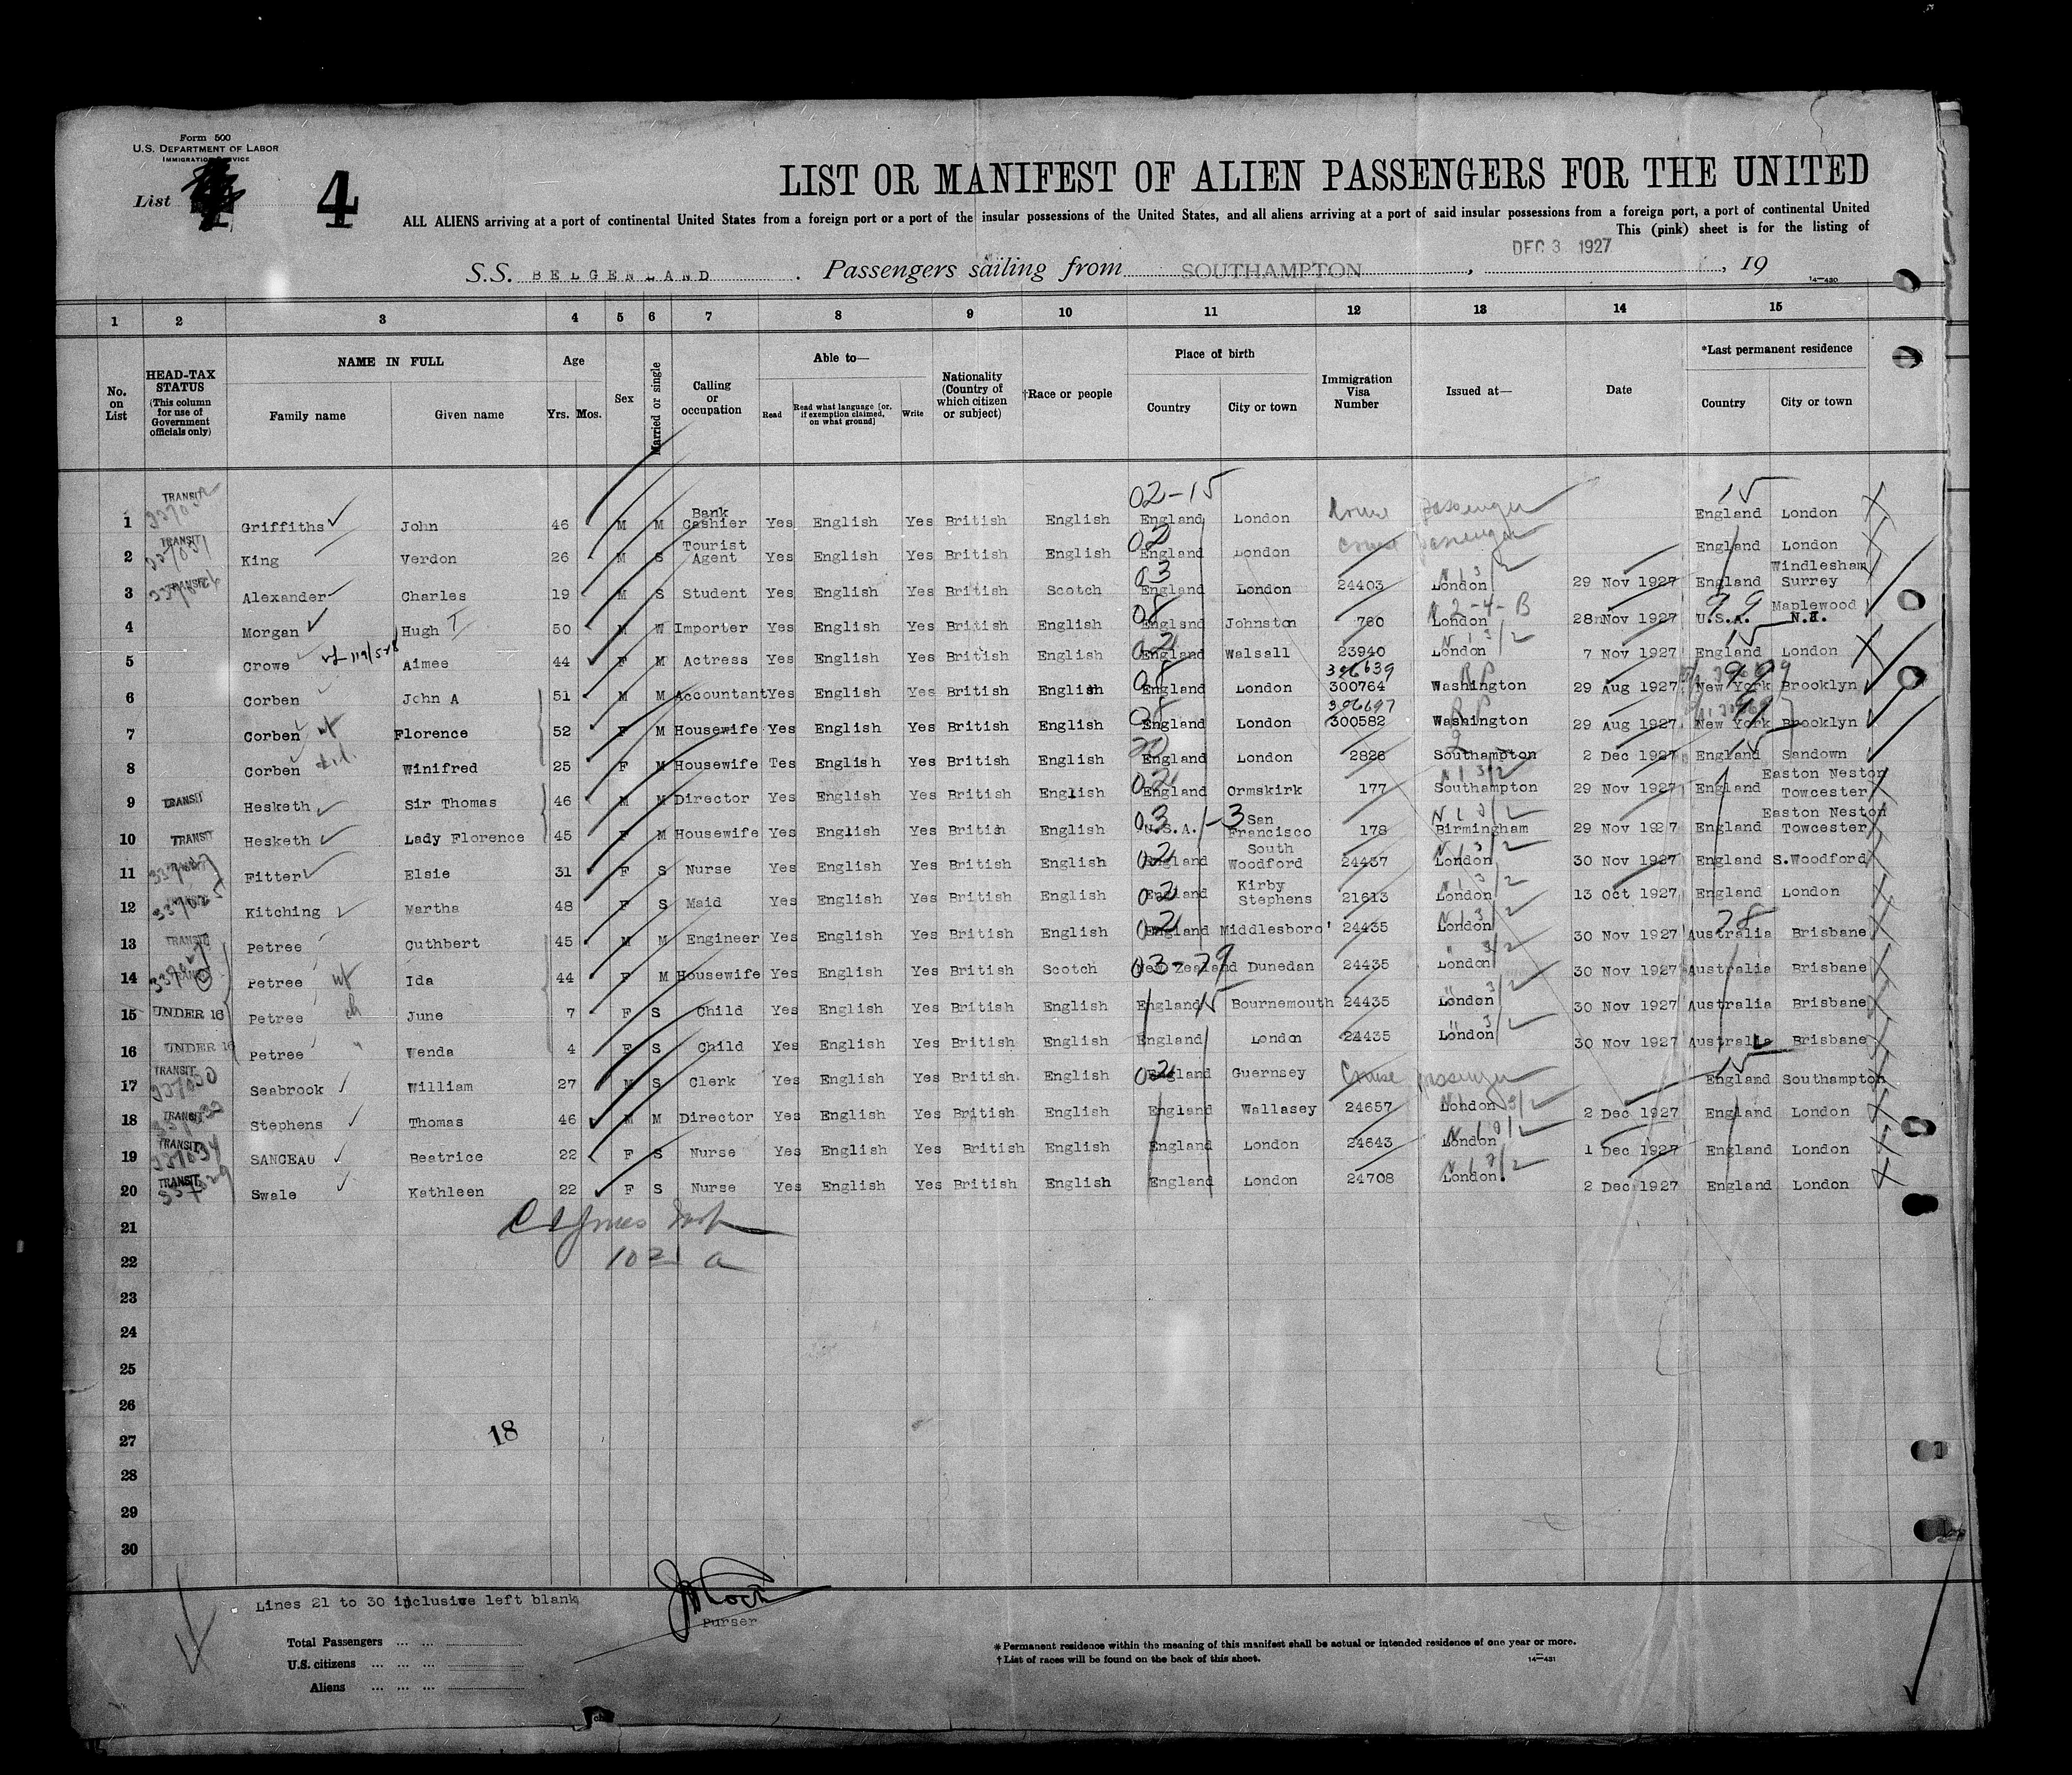 Form 500
U.S. DEPARTMENT OF LABOR
IMMIGRATION SERVICE
List 4
LIST OR MANIFEST OF ALIEN PASSENGERS FOR THE UNITED
ALL ALIENS arriving at a port of continental United States from a foreign port or a port of the insular possessions of the United States, and all aliens arriving at a port of said insular possessions from a foreign port, a port of continental United
This (pink) sheet is for the listing of
DEC 3 1927
S.S. BELGENLAND. Passengers sailing from SOUTHAMPTON, , 19
14—430
1 2 3 4 5 6 7 8 9 10 11 12 13 14 15
No. on List HEAD-TAX STATUS (This column for use of Government officials only) NAME IN FULL Family name Given name Age Yrs. Mos. Sex Married or single Calling or occupation Able to— Read Read what language [or, if exemption claimed, on what ground] Write Nationality (Country of which citizen or subject) †Race or people Place of birth Country City or town Immigration Visa Number Issued at— Date *Last permanent residence Country City or town
02-15 15
1 TRANSIT Griffiths John 46 M M Bank Cashier Yes English Yes British English England London Cruise passenger England London
2 TRANSIT King Verdon 26 M S Tourist Agent Yes English Yes British English 02 England London Cruise passenger England London
3 TRANSIT Alexander Charles 19 M S Student Yes English Yes British Scotch 03 England London 24403 London 29 Nov 1927 England Windlesham Surrey
4 Morgan Hugh T 50 M W Importer Yes English Yes British English 08 England Johnston 760 London 2-4-B 28 Nov 1927 99 U.S.A. Maplewood N.J.
5 Crowe Aimee 44 F M Actress Yes English Yes British English 02 England Walsall 23940 London 7 Nov 1927 15 England London
6 Corben John A 51 M M Accountant Yes English Yes British English 08 England London 306639 300764 Washington RP 29 Aug 1927 New York Brooklyn
7 Corben wf Florence 52 F M Housewife Yes English Yes British English 08 England London 306697 300582 Washington RP 29 Aug 1927 New York Brooklyn
8 Corben Winifred 25 F M Housewife Tes English Yes British English England London 2826 Southampton 2 Dec 1927 15 England Sandown
9 TRANSIT Hesketh Sir Thomas 46 M M Director Yes English Yes British English 02 England Ormskirk 177 Southampton 29 Nov 1927 England Easton Neston Towcester
10 TRANSIT Hesketh Lady Florence 45 F M Housewife Yes English Yes British English 03 U.S.A. San Francisco 178 Birmingham 29 Nov 1927 England Easton Neston Towcester
11 Fitter Elsie 31 F S Nurse Yes English Yes British English 02 England South Woodford 24437 London 30 Nov 1927 England S.Woodford
12 Kitching Martha 48 F S Maid Yes English Yes British English 02 England Kirby Stephens 21613 London 13 Oct 1927 England London
13 TRANSIT Petree Cuthbert 45 M M Engineer Yes English Yes British English 02 England Middlesboro' 24435 London 30 Nov 1927 28 Australia Brisbane
14 Petree wf Ida 44 F M Housewife Yes English Yes British Scotch 03-79 New Zealand Dunedan 24435 London 30 Nov 1927 Australia Brisbane
15 UNDER 16 Petree ch June 7 F S Child Yes English Yes British English England 15 Bournemouth 24435 London 30 Nov 1927 Australia Brisbane
16 UNDER 16 Petree " Wenda 4 F S Child Yes English Yes British English England London 24435 London 30 Nov 1927 Australia Brisbane
17 TRANSIT Seabrook William 27 M S Clerk Yes English Yes British English 02 England Guernsey Cruise passenger 15 England Southampton
18 TRANSIT Stephens Thomas 46 M M Director Yes English Yes British English England Wallasey 24657 London 2 Dec 1927 England London
19 TRANSIT SANCEAU Beatrice 22 F S Nurse Yes English Yes British English England London 24643 London 1 Dec 1927 England London
20 TRANSIT Swale Kathleen 22 F S Nurse Yes English Yes British English England London 24708 London 2 Dec 1927 England London
21
22
23
24
25
26
27
18
28
29
30
Lines 21 to 30 inclusive left blank
Purser
Total Passengers ... ...
U.S. citizens ... ... ...
Aliens ... ... ...
*Permanent residence within the meaning of this manifest shall be actual or intended residence of one year or more.
†List of races will be found on the back of this sheet.
14—431